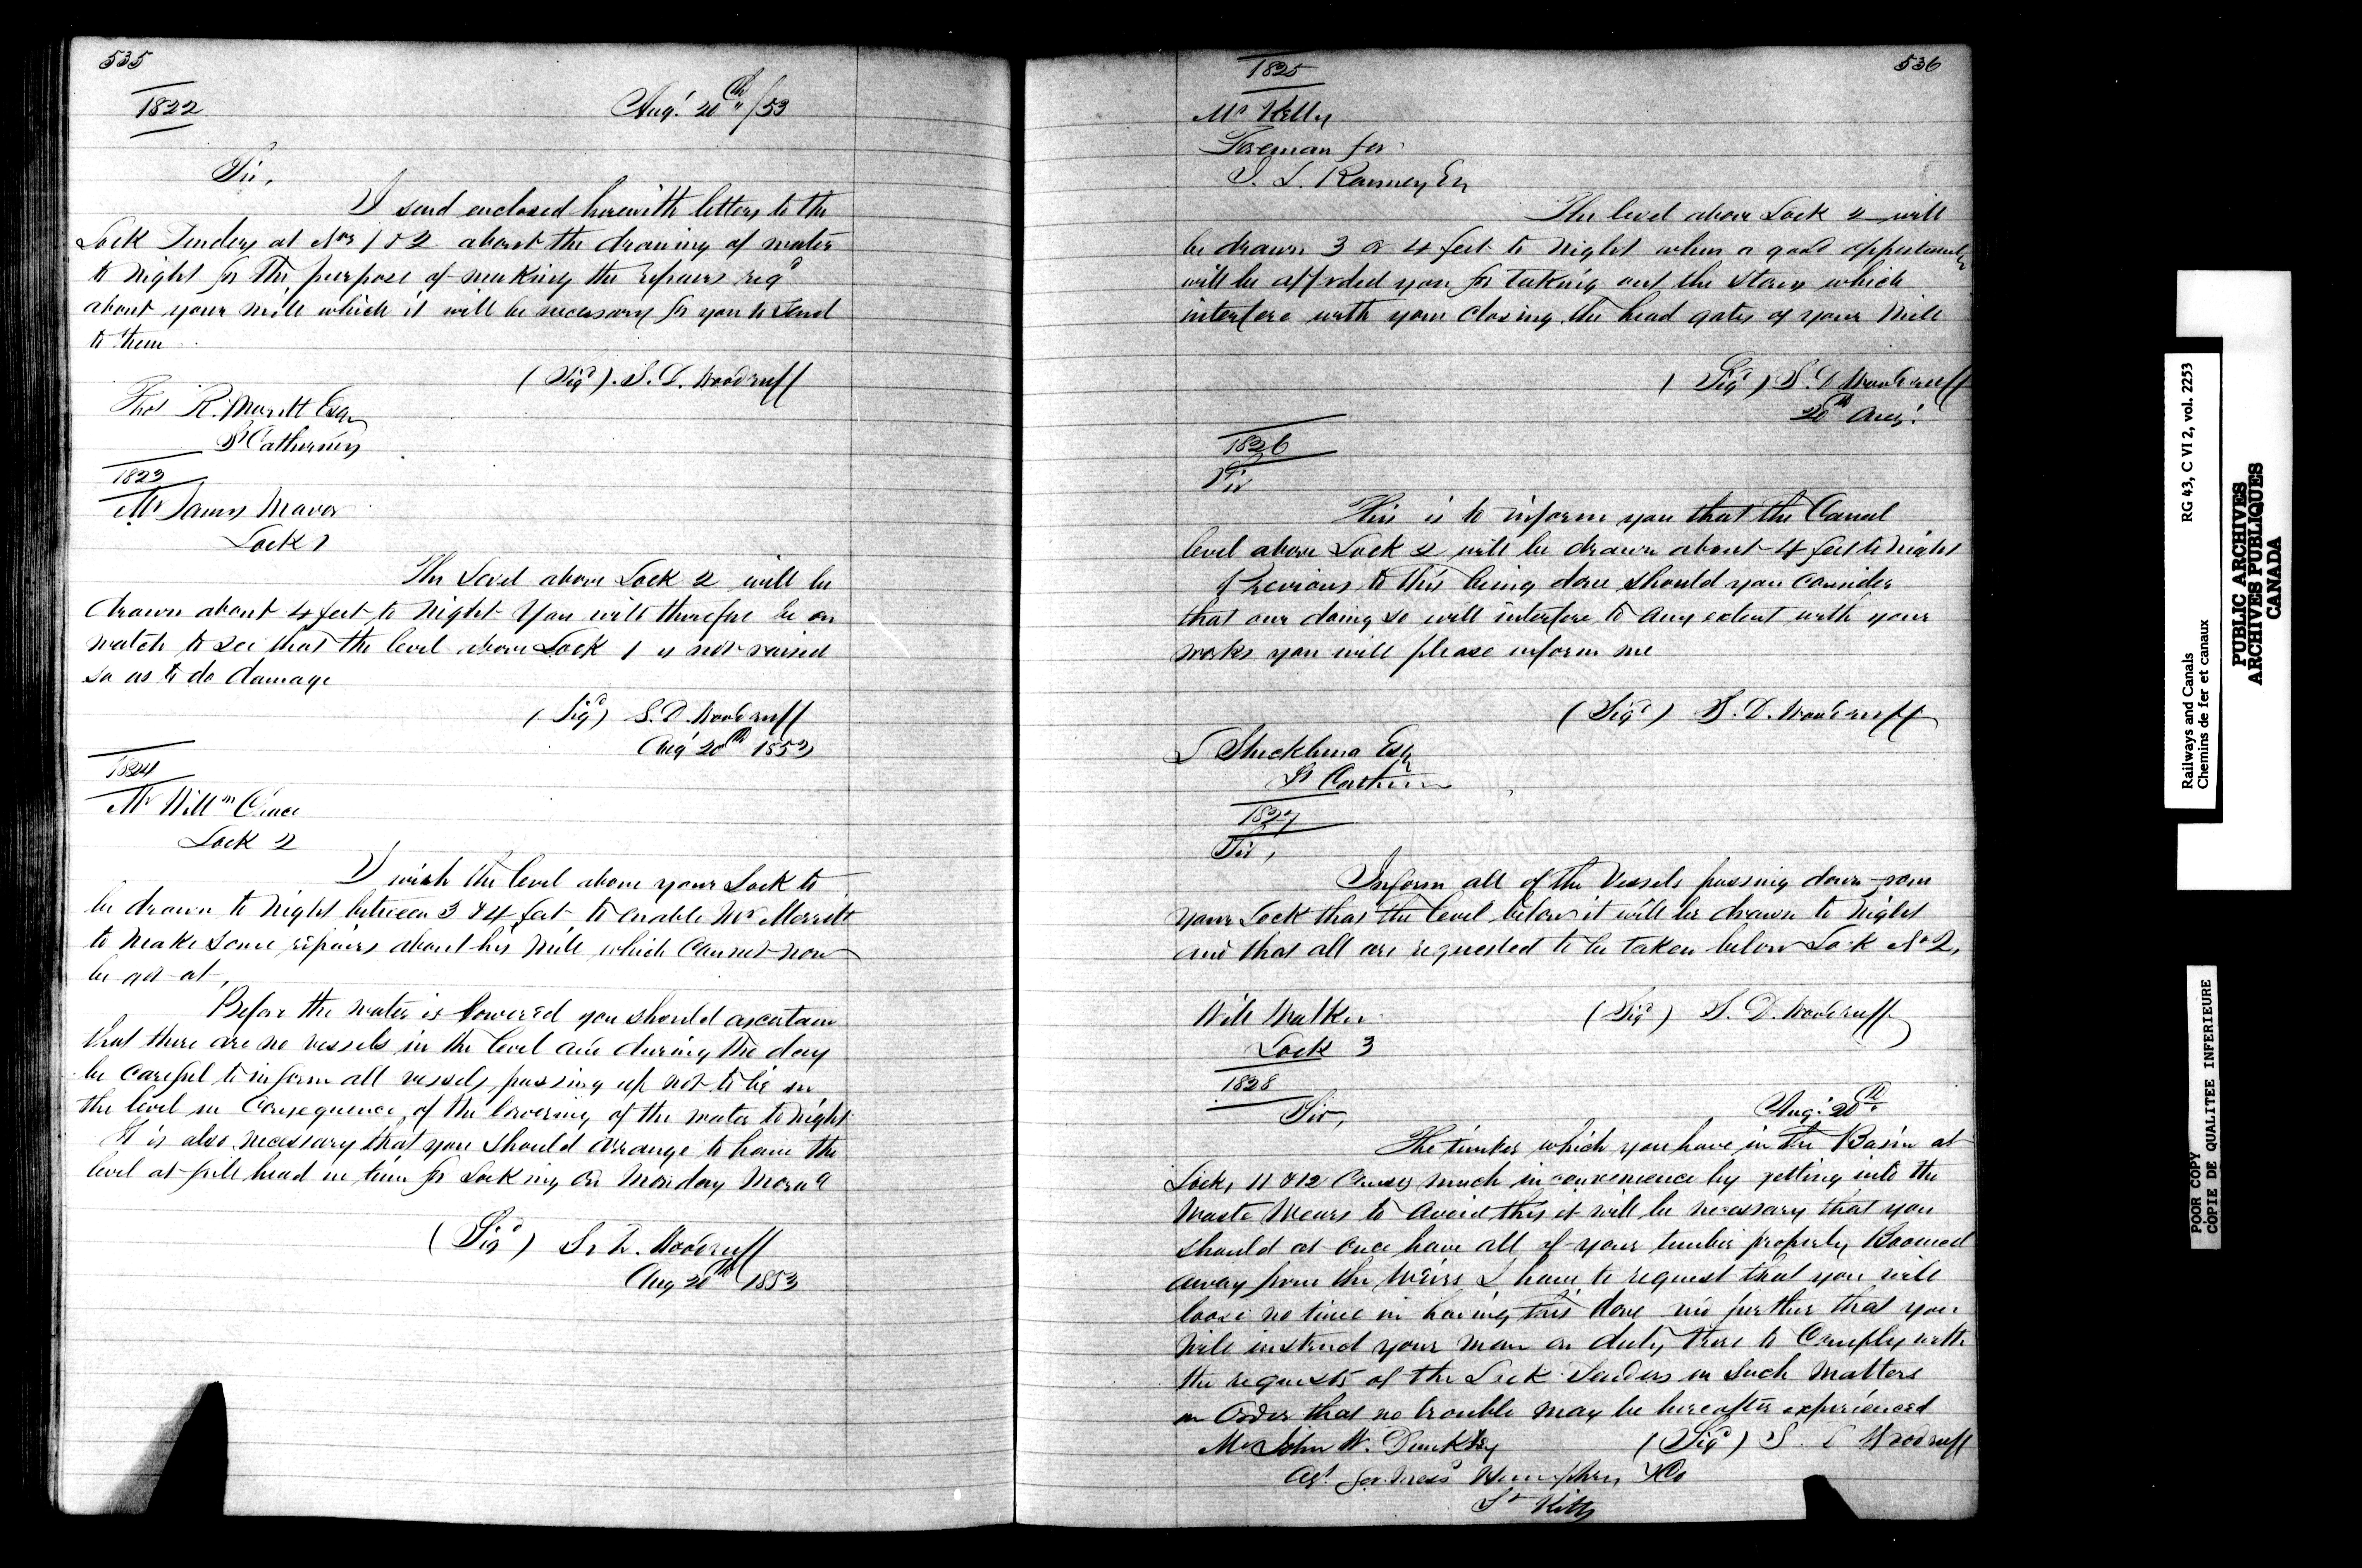 535
1822
Augt 20th/53
Sir,
I send enclosed herewith letters to the
Lock Tenders at Nos 1 & 2 about the drawing of water
to night for the purpose of making the repairs reqd
about your mill which it will be necessary for you to send
to them
(Sigd). S. D. Woodruff
Thos R. Merritt Esqr
St Catherines
1823
Mr James Mavor
Lock 1
The Level above Lock 2 will be
drawn about 4 feet to night You will therefore be on
watch to see that the level above Lock 1 is not raised
so as to do damage
(Sigd) S. D. Woodruff
Augt 20th 1853
1824
Mr Willm Grace
Lock 2
I wish the level above your Lock to
be drawn to night between 3 & 4 feet to enable Mr Merritt
to make some repairs about his Mill which cannot now
be got at,
Before the water is lowered you should ascertain
that there are no vessels in the level and during the day
be careful to inform all vessels passing up not to lie in
the level in Consequence of the lowering of the water to night
It is also necessary that you should arrange to have the
level at full head in time for Locking on Monday Morng
(Sigd) S. D. Woodruff
Aug 20th 1853
536
1825
Mr Kelly
Foreman for
Ranney Esq
The level above Lock 2 will
be drawn 3 or 4 feet to night when a good opportunity
will be afforded you for taking out the stones which
interfere with your closing the head gates of your Mill
(Sigd) S. D Woodruff
20th Augt
1826
Sir
This is to inform you that the Canal
level above Lock 2 will be drawn about 4 feet to night
Previous to this being done should you consider
that our doing so will interfere to any extent with your
works you will please inform me
(Sigd) S. D. Woodruff
L Shickluna Esqr
St Catherines
1827
Sir,
Inform all of the Vessels passing down from
your Lock that the level below it will be drawn to night
and that all are requested to be taken below Lock No 2,
Will Walker
(Sigd) S. D. Woodruff
Lock 3
1828
Augt 20th
Sir,
The timber which you have in the Basin at
Locks 11 & 12 Causes much inconvenience by getting into the
Waste Wears to avoid this it will be necessary that you
should at once have all of your timber properly Boomed
away from the Weirs I have to request that you will
loose no time in having this done and further that you
will instruct your man on duty there to Comply with
the requests of the Lock Tenders in such matters
in Order that no trouble may be hereafter experienced
Mr John W. Dunkley
(Sigd) S. D Woodruff
Agt for Messrs Humphrey & Co
St Kitts
Railways and Canals RG 43, C VI 2, vol. 2253
Chemins de fer et canaux
PUBLIC ARCHIVES
ARCHIVES PUBLIQUES
CANADA
POOR COPY
COPIE DE QUALITEE INFERIEURE